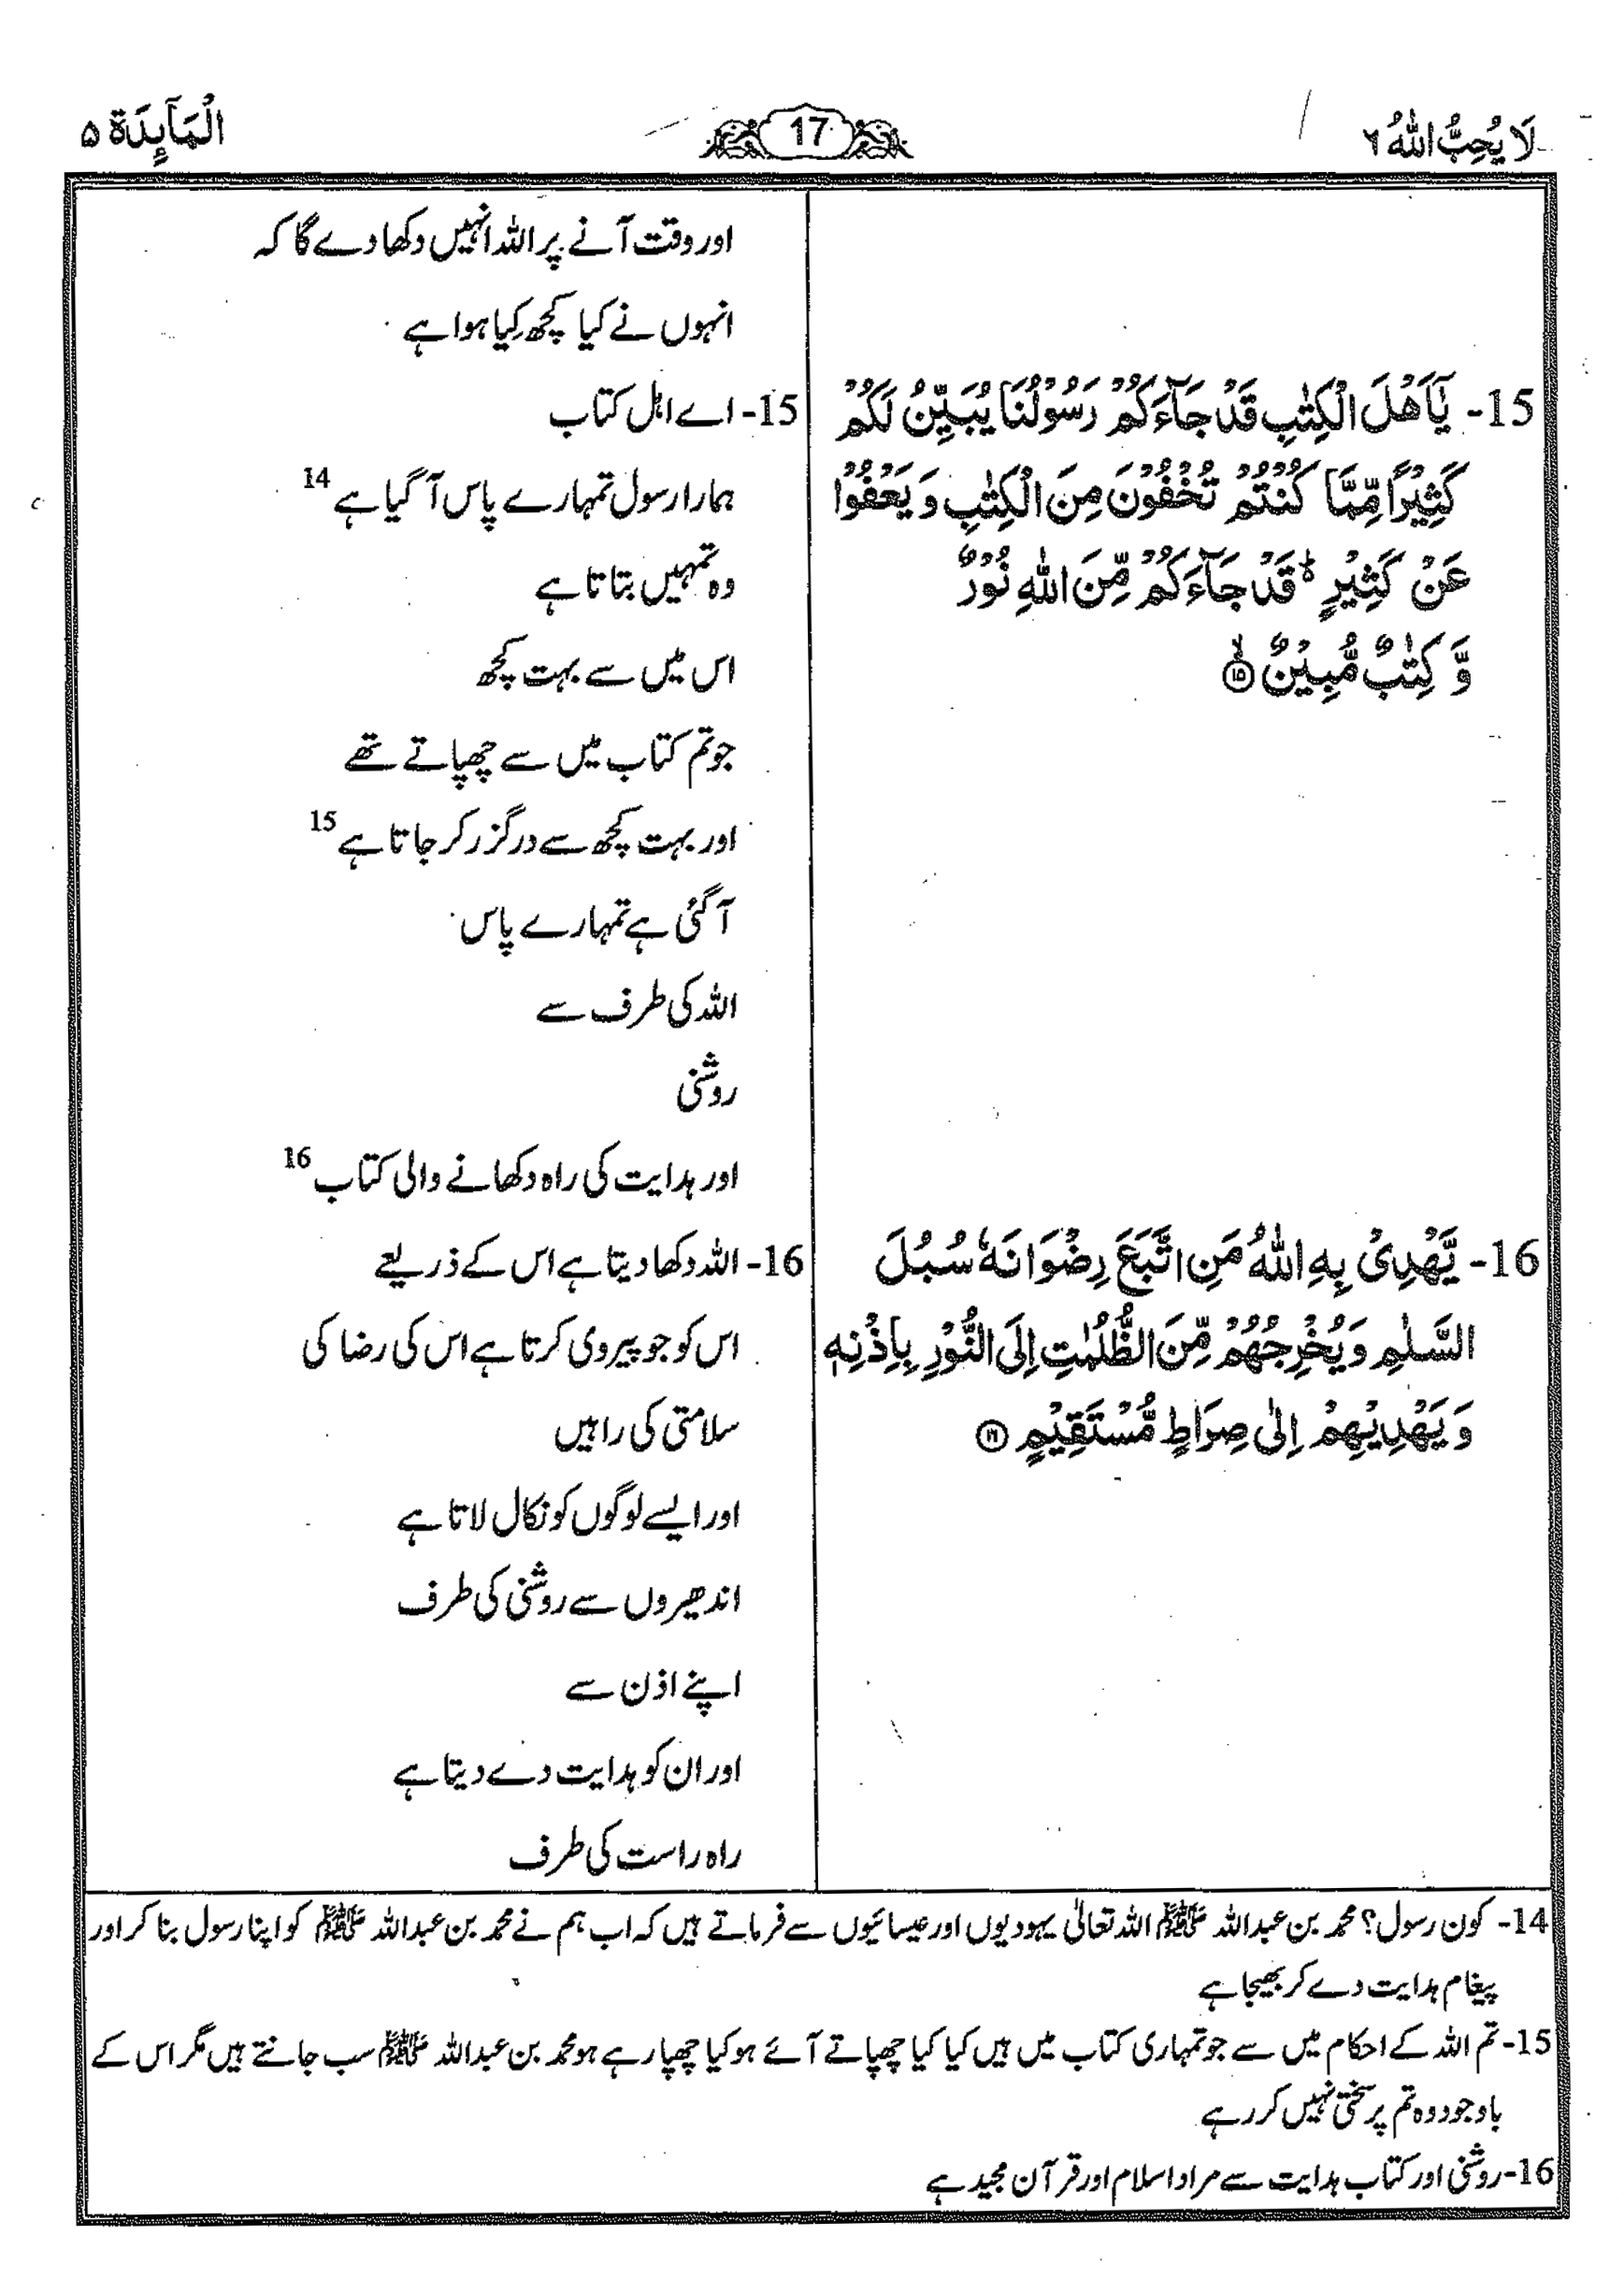 لَا يُحِبُّ اللهُ ٦
17
الْمَآىِٕدَة ۵
اور وقت آنے پر اللہ انہیں دکھا دے گا کہ
انہوں نے کیا کچھ کِیا ہوا ہے
15- يٰٓاَهْلَ الْكِتٰبِ قَدْ جَآءَكُمْ رَسُوْلُنَا يُبَيِّنُ لَكُمْ
كَثِيْرًا مِّمَّا كُنْتُمْ تُخْفُوْنَ مِنَ الْكِتٰبِ وَيَعْفُوْا
عَنْ كَثِيْرٍ ؕ قَدْ جَآءَكُمْ مِّنَ اللهِ نُوْرٌ
وَّ كِتٰبٌ مُّبِيْنٌ ۙ ﴿۱۵﴾
15- اے اہل کتاب
ہمارا رسول تمہارے پاس آ گیا ہے 14
وہ تمہیں بتاتا ہے
اس میں سے بہت کچھ
جو تم کتاب میں سے چھپاتے تھے
اور بہت کچھ سے درگزر کر جاتا ہے 15
آ گئی ہے تمہارے پاس
اللہ کی طرف سے
روشنی
اور ہدایت کی راہ دکھانے والی کتاب 16
16- يَّهْدِىْ بِهِ اللهُ مَنِ اتَّبَعَ رِضْوَانَهٗ سُبُلَ
السَّلٰمِ وَيُخْرِجُهُمْ مِّنَ الظُّلُمٰتِ اِلَى النُّوْرِ بِاِذْنِهٖ
وَيَهْدِيْهِمْ اِلٰى صِرَاطٍ مُّسْتَقِيْمٍ ﴿۱۶﴾
16- اللہ دکھا دیتا ہے اس کے ذریعے
اس کو جو پیروی کرتا ہے اس کی رضا کی
سلامتی کی راہیں
اور ایسے لوگوں کو نکال لاتا ہے
اندھیروں سے روشنی کی طرف
اپنے اذن سے
اور ان کو ہدایت دے دیتا ہے
راہ راست کی طرف
14- کون رسول؟ محمد بن عبداللہ ﷺ اللہ تعالیٰ یہودیوں اور عیسائیوں سے فرماتے ہیں کہ اب ہم نے محمد بن عبداللہ ﷺ کو اپنا رسول بنا کر اور
پیغام ہدایت دے کر بھیجا ہے
15- تم اللہ کے احکام میں سے جو تمہاری کتاب میں ہیں کیا کیا چھپاتے آئے ہو کیا چھپا رہے ہو محمد بن عبداللہ ﷺ سب جانتے ہیں مگر اس کے
باوجود وہ تم پر سختی نہیں کر رہے
16- روشنی اور کتاب ہدایت سے مراد اسلام اور قرآن مجید ہے